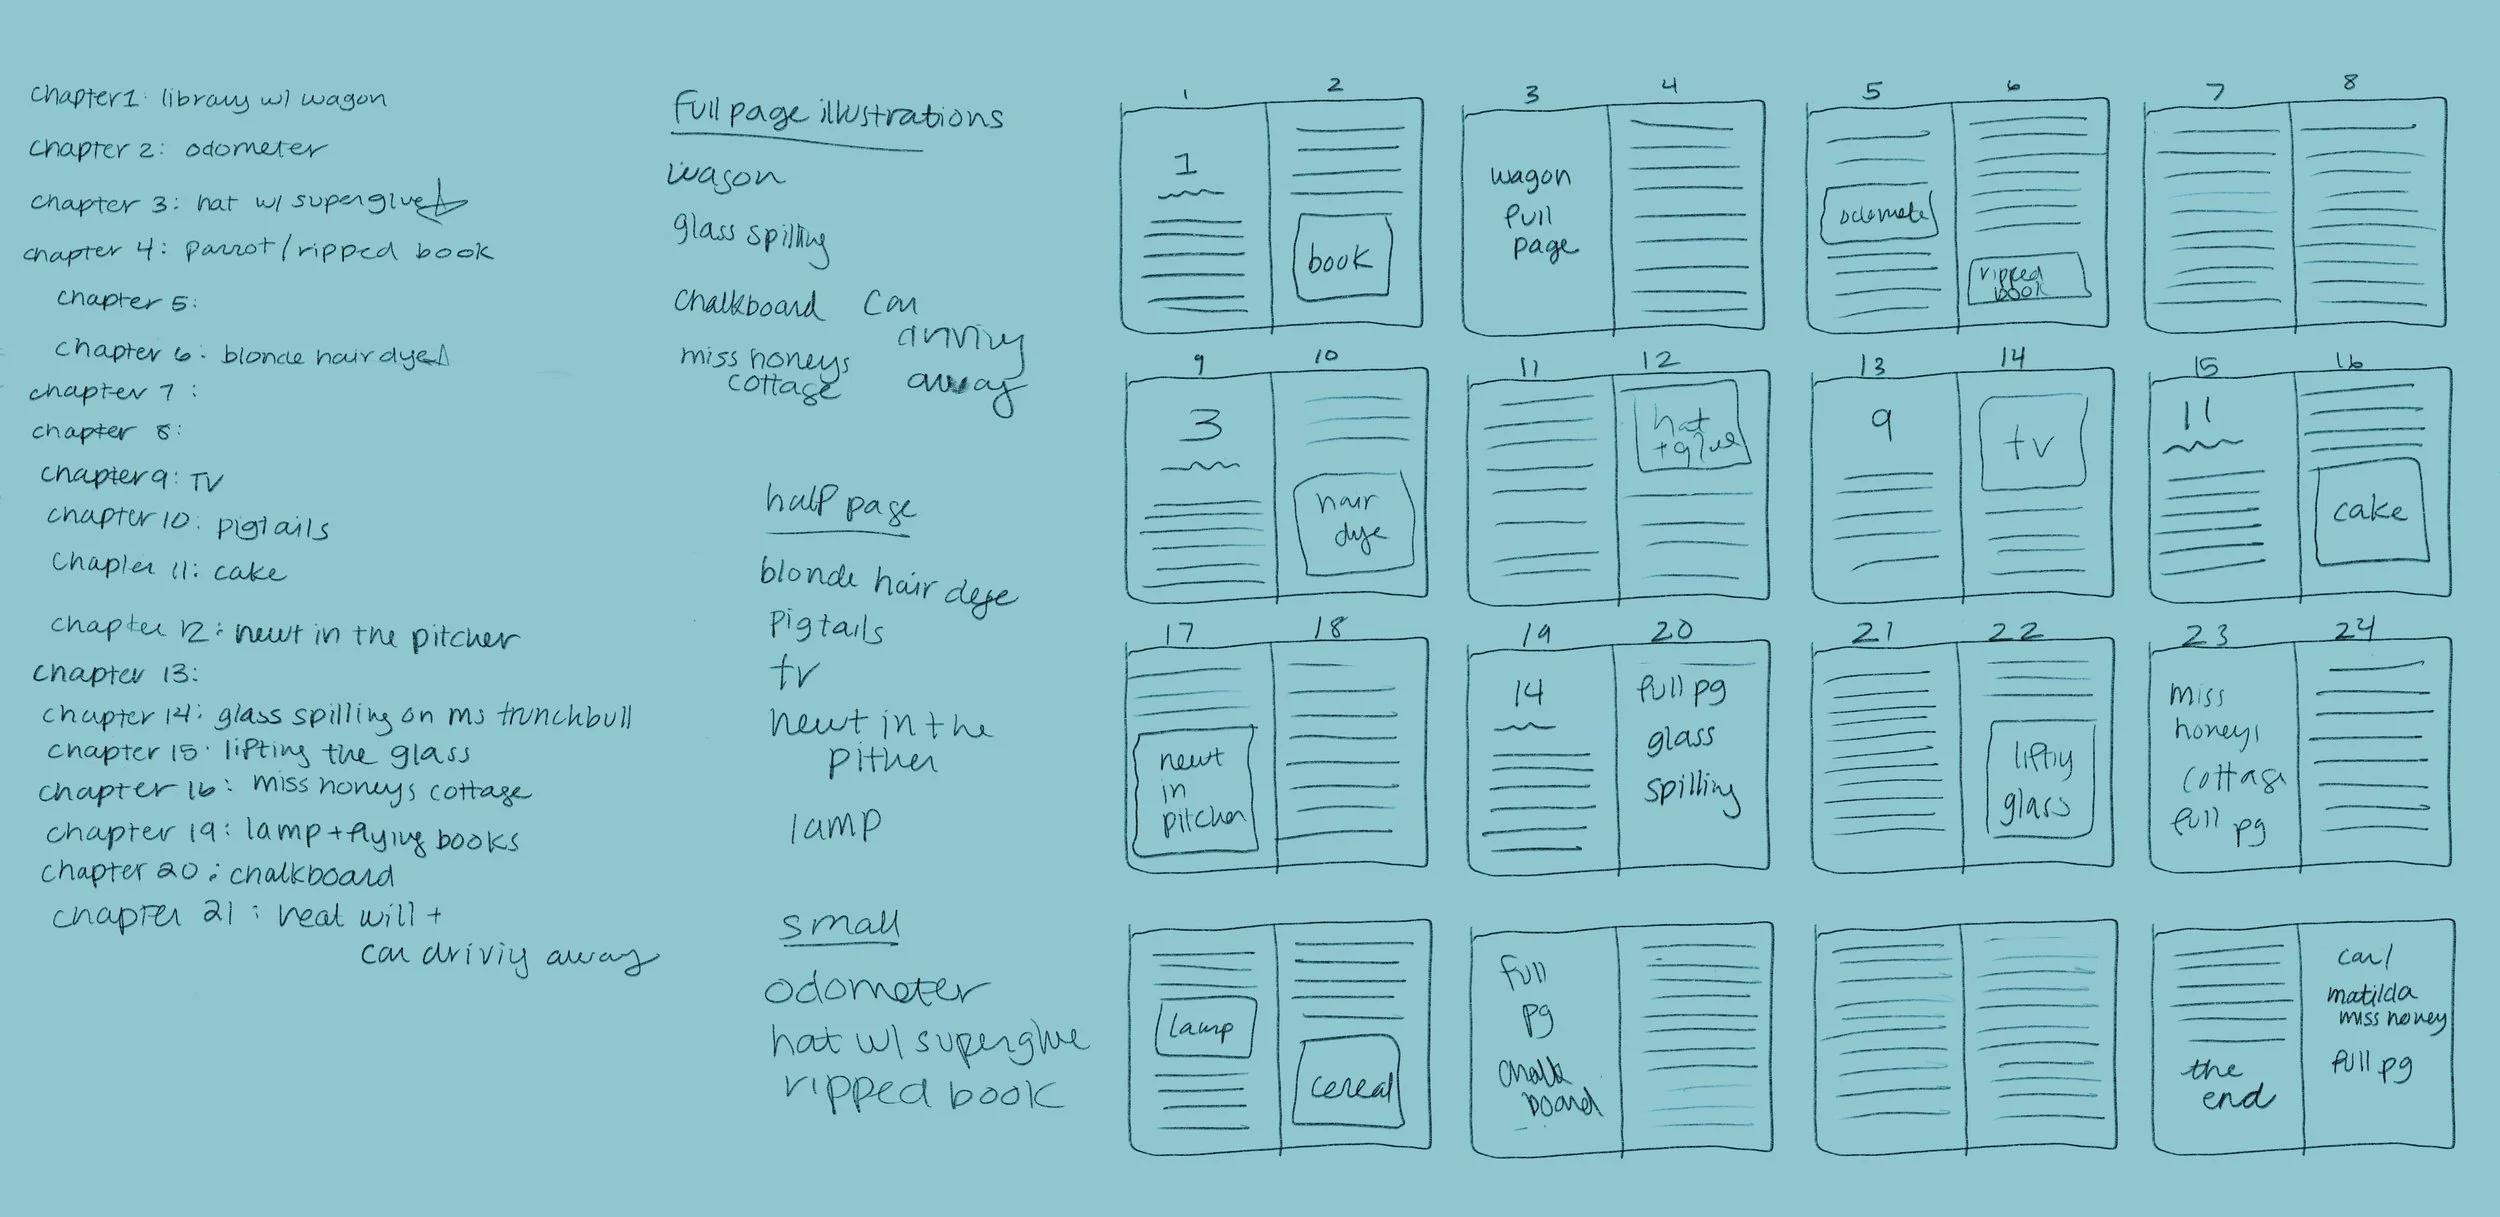 chapter 1: library w/ wagon
chapter 2: odometer
chapter 3: hat w/ superglue
chapter 4: parrot/ripped book
chapter 5:
chapter 6: blonde hair dye
chapter 7:
chapter 8:
chapter 9: TV
chapter 10: pigtails
chapter 11: cake
chapter 12: newt in the pitcher
chapter 13:
chapter 14: glass spilling on ms trunchbull
chapter 15: lifting the glass
chapter 16: miss honeys cottage
chapter 19: lamp + flying books
chapter 20: chalkboard
chapter 21: neat will +
car driviy away
Full page illustrations
wagon
glass spilling
chalkboard
miss honeys
cottage
car
driviy
away
half page
blonde hair dye
pigtails
tv
newt in the
pither
lamp
small
odometer
hat w/ superglue
ripped book
1 2
1
book
3 4
wagon
full
page
5 6
odomete
ripped
book
7 8
9 10
3
hair
dye
11 12
hat
+ glue
13 14
9
tv
15 16
11
cake
17 18
newt
in
pitcher
19 20
14
full pg
glass
spilling
21 22
liftiy
glass
23 24
miss
honeys
cottage
full pg
lamp
cereal
full
pg
chalk
board
the
end
car/
matilda
miss honey
full pg